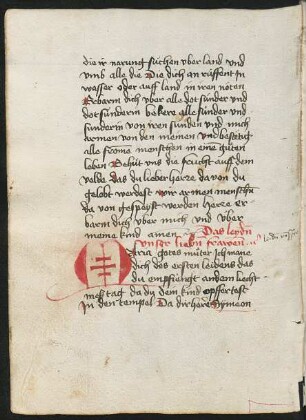 die ir narung suchen vber land vnd
vmb alle die Die dich an ruffent In
wasser oder auff land in iren noten
Erbarm dich vber alle dot sunder vnd
dot sunderin bekere alle sunder vnd
sunderin von iren sunden vnd mich
armen von den meinen vnd
alle frome menschen in eine guten
leben Behut uns die frucht auff dem
velde das du lieber herre da von du
gelobt werdest wir armen menschn
da von gespeyst werden herre er
barm dich vber mich vnd vber
meine kind amen Das leydn
vnser liebn frawen
Maria gotes muter Ich mane
dich des ersten leidens das
du enpfiengt an dem liecht
meß tag da du dein kind opffertest
in den tempel Da dir herr Symeon